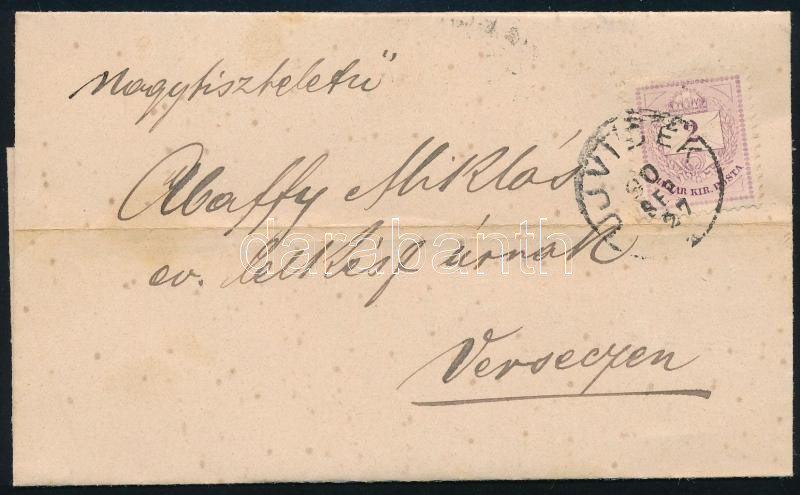 Nagytiszteletü
Abaffy Miklós
ev. lelkész úrnak
Verseczen
2
MAGYAR KIR. POSTA
UJVIDÉK
SEP
27
darabanth